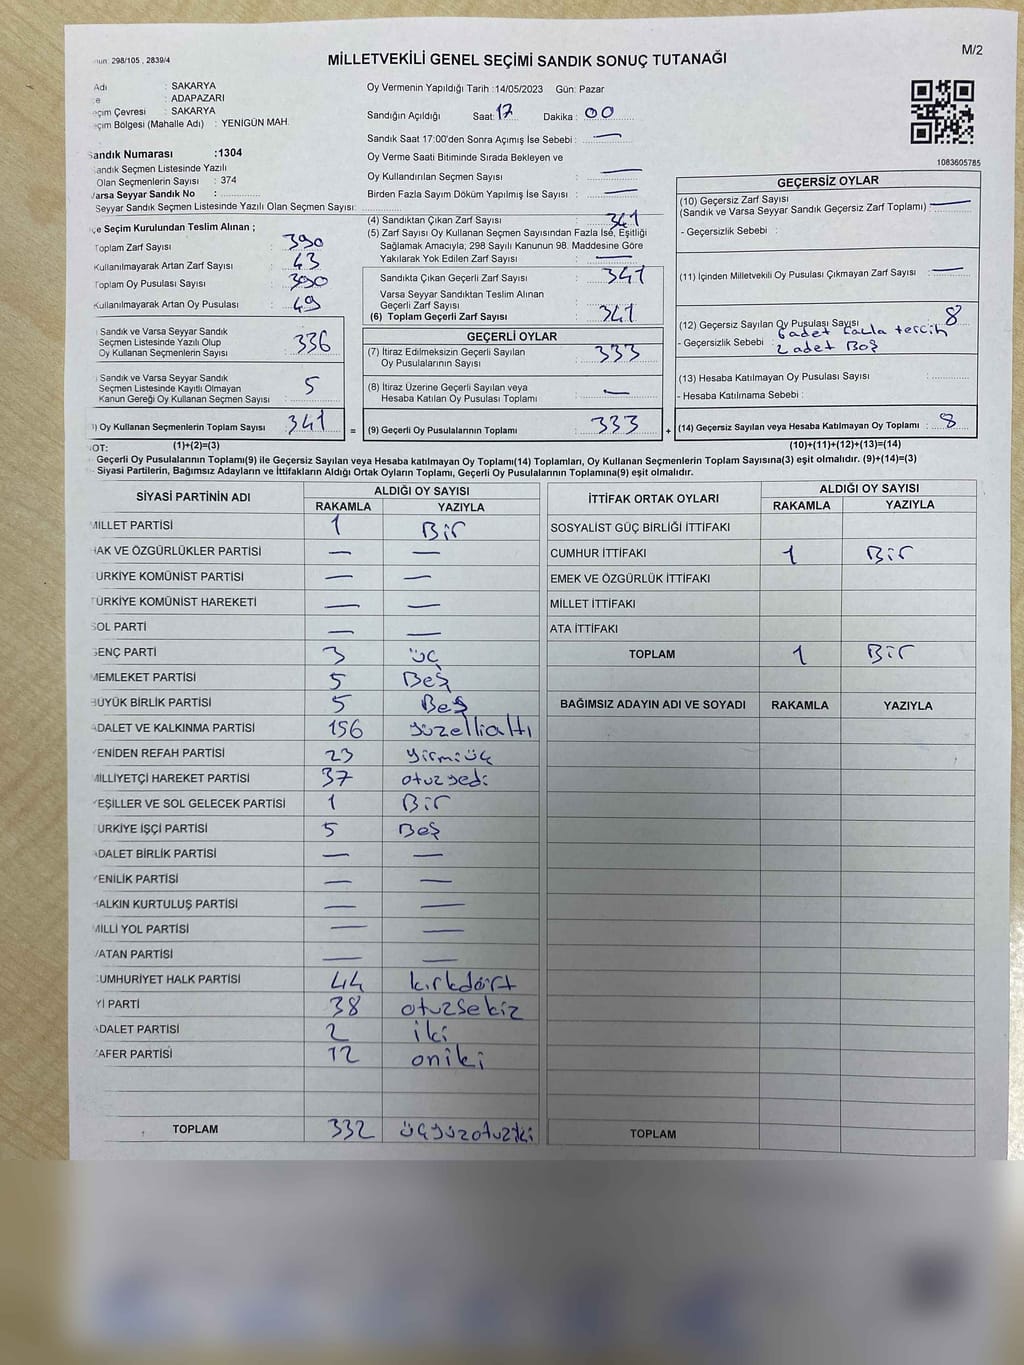 298/105 , 2839/4
MİLLETVEKİLİ GENEL SEÇİMİ SANDIK SONUÇ TUTANAĞI
M/2
Adı : SAKARYA
: ADAPAZARI
Çevresi : SAKARYA
Bölgesi (Mahalle Adı) : YENİGÜN MAH.
Oy Vermenin Yapıldığı Tarih :14/05/2023 Gün: Pazar
Sandığın Açıldığı Saat: 17 Dakika : 00
Sandık Saat 17:00'den Sonra Açımış İse Sebebi : —
Oy Verme Saati Bitiminde Sırada Bekleyen ve
Oy Kullandırılan Seçmen Sayısı : —
Birden Fazla Sayım Döküm Yapılmış İse Sayısı : —
1083605785
Sandık Numarası :1304
Sandık Seçmen Listesinde Yazılı
Olan Seçmenlerin Sayısı : 374
Varsa Seyyar Sandık No :
Seyyar Sandık Seçmen Listesinde Yazılı Olan Seçmen Sayısı:
Seçim Kurulundan Teslim Alınan ;
Toplam Zarf Sayısı : 390
Kullanılmayarak Artan Zarf Sayısı : 43
Toplam Oy Pusulası Sayısı : 390
Kullanılmayarak Artan Oy Pusulası : 49
Sandık ve Varsa Seyyar Sandık
Seçmen Listesinde Yazılı Olup
Oy Kullanan Seçmenlerin Sayısı : 336
Sandık ve Varsa Seyyar Sandık
Seçmen Listesinde Kayıtlı Olmayan
Kanun Gereği Oy Kullanan Seçmen Sayısı : 5
Oy Kullanan Seçmenlerin Toplam Sayısı : 341 =
(1)+(2)=(3)
(4) Sandıktan Çıkan Zarf Sayısı : 341
(5) Zarf Sayısı Oy Kullanan Seçmen Sayısından Fazla İse, Eşitliği
Sağlamak Amacıyla, 298 Sayılı Kanunun 98. Maddesine Göre
Yakılarak Yok Edilen Zarf Sayısı : —
Sandıkta Çıkan Geçerli Zarf Sayısı : 341
Varsa Seyyar Sandıktan Teslim Alınan
Geçerli Zarf Sayısı :
(6) Toplam Geçerli Zarf Sayısı : 341
GEÇERLİ OYLAR
(7) İtiraz Edilmeksizin Geçerli Sayılan
Oy Pusulalarının Sayısı : 333
(8) İtiraz Üzerine Geçerli Sayılan veya
Hesaba Katılan Oy Pusulası Toplamı : —
(9) Geçerli Oy Pusulalarının Toplamı : 333 +
GEÇERSİZ OYLAR
(10) Geçersiz Zarf Sayısı
(Sandık ve Varsa Seyyar Sandık Geçersiz Zarf Toplamı) : —
- Geçersizlik Sebebi :
(11) İçinden Milletvekili Oy Pusulası Çıkmayan Zarf Sayısı : —
(12) Geçersiz Sayılan Oy Pusulası Sayısı : 8
- Geçersizlik Sebebi : 6 adet fazla tercih
2 adet Boş
(13) Hesaba Katılmayan Oy Pusulası Sayısı :
- Hesaba Katılmama Sebebi :
(14) Geçersiz Sayılan veya Hesaba Katılmayan Oy Toplamı : 8
(10)+(11)+(12)+(13)=(14)
Geçerli Oy Pusulalarının Toplamı(9) ile Geçersiz Sayılan veya Hesaba katılmayan Oy Toplamı(14) Toplamları, Oy Kullanan Seçmenlerin Toplam Sayısına(3) eşit olmalıdır. (9)+(14)=(3)
- Siyasi Partilerin, Bağımsız Adayların ve İttifakların Aldığı Ortak Oyların Toplamı, Geçerli Oy Pusulalarının Toplamına(9) eşit olmalıdır.
SİYASİ PARTİNİN ADI ALDIĞI OY SAYISI
RAKAMLA YAZIYLA
MİLLET PARTİSİ 1 Bir
HAK VE ÖZGÜRLÜKLER PARTİSİ — —
TÜRKİYE KOMÜNİST PARTİSİ — —
TÜRKİYE KOMÜNİST HAREKETİ — —
SOL PARTİ — —
GENÇ PARTİ 3 üç
MEMLEKET PARTİSİ 5 Beş
BÜYÜK BİRLİK PARTİSİ 5 Beş
ADALET VE KALKINMA PARTİSİ 156 yüzellialtı
YENİDEN REFAH PARTİSİ 23 yirmiüç
MİLLİYETÇİ HAREKET PARTİSİ 37 otuzyedi
YEŞİLLER VE SOL GELECEK PARTİSİ 1 Bir
TÜRKİYE İŞÇİ PARTİSİ 5 Beş
ADALET BİRLİK PARTİSİ — —
YENİLİK PARTİSİ — —
HALKIN KURTULUŞ PARTİSİ — —
MİLLİ YOL PARTİSİ — —
VATAN PARTİSİ — —
CUMHURİYET HALK PARTİSİ 44 kırkdört
İYİ PARTİ 38 otuzsekiz
ADALET PARTİSİ 2 iki
ZAFER PARTİSİ 12 oniki
TOPLAM 332 üçyüzotuziki
İTTİFAK ORTAK OYLARI ALDIĞI OY SAYISI
RAKAMLA YAZIYLA
SOSYALİST GÜÇ BİRLİĞİ İTTİFAKI
CUMHUR İTTİFAKI 1 Bir
EMEK VE ÖZGÜRLÜK İTTİFAKI
MİLLET İTTİFAKI
ATA İTTİFAKI
TOPLAM 1 Bir
BAĞIMSIZ ADAYIN ADI VE SOYADI RAKAMLA YAZIYLA
TOPLAM